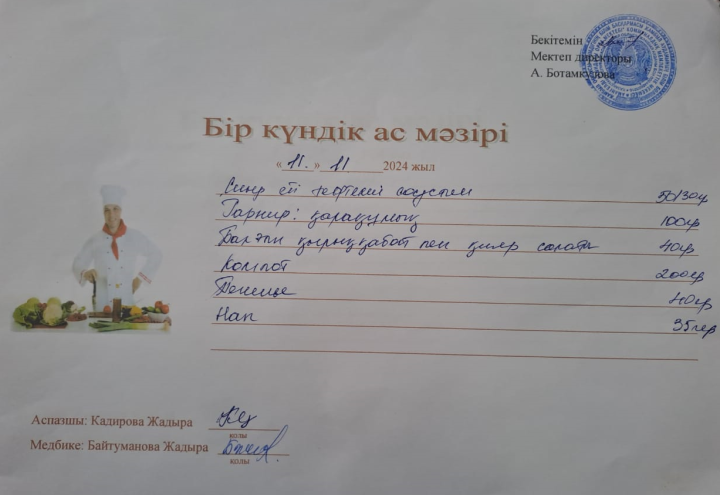 Бекітемін
Мектеп директоры
А. Ботамкулова
Бір күндік ас мәзірі
«11.» 11 2024 жыл
Сиыр еті тефтелий соусымен 50/30гр
Гарнир: қарақұмық 100гр
Балғын қырыққабат пен қияр салаты 40гр
Компот 200гр
Печенье 40гр
Нан 35гр
Аспазшы: Кадирова Жадыра
қолы
Медбике: Байтуманова Жадыра
қолы